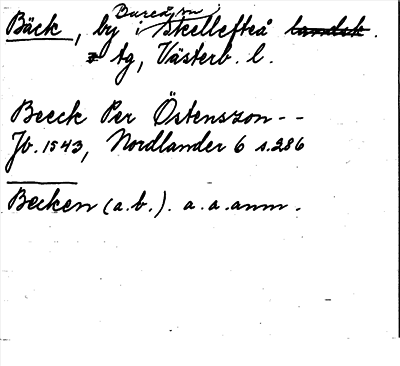 Bäck, by i Bureå sn Skellefteå landsk.
tg, Västerb. l.
Beeck Per Östenszon--
Jb. 1543, Nordlander 6 s. 286
Becken (a.b.). a.a. anm.